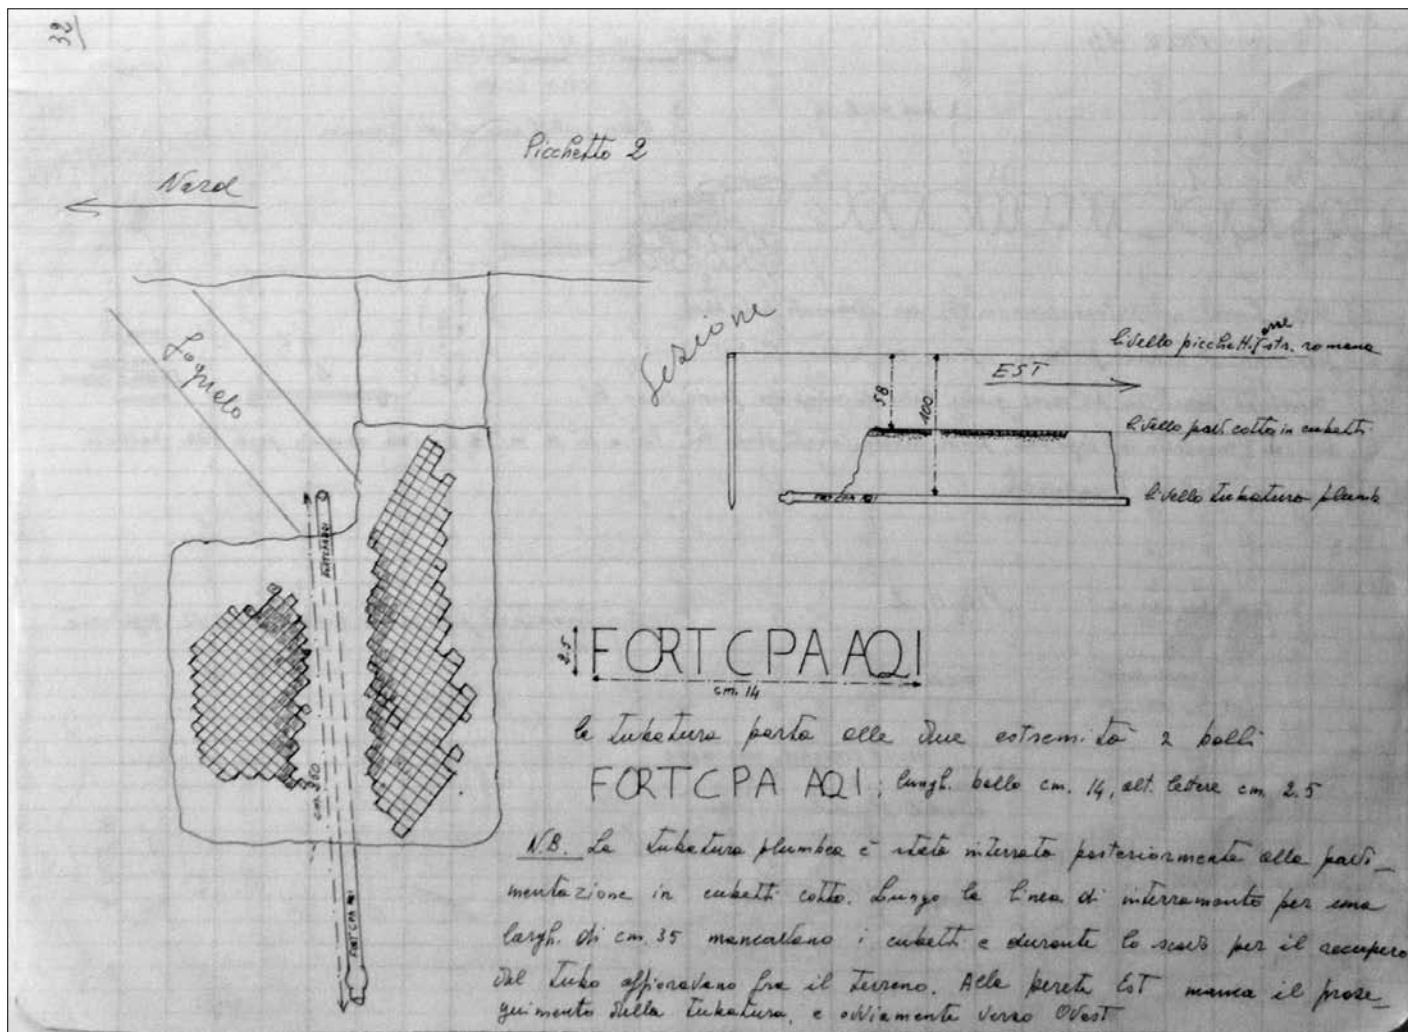 32/
Picchetto 2
Nord
Sezione
livello picchett. asse str. romana
EST
58
100
livello pav. cotto in cubetti
FORT CPA AQI
livello tubatura plumb
FORTCPAAQI
cm. 360
FORT CPA AQI
2.5
FORT C PA AQI
cm. 14
la tubatura porta alle due estremità 2 bolli
FORT C PA AQI; lungh. bollo cm. 14, alt. lettere cm 2.5
N.B. La tubatura plumbea è stata interrata posteriormente alla pavi_
mentazione in cubetti cotto. Lungo la linea di interramento per una
largh. di cm. 35 mancavano i cubetti e durante lo scavo per il recupero
del tubo affioravano fra il terreno. Alla parete EST manca il prose_
guimento della tubatura, e ovviamente verso Ovest